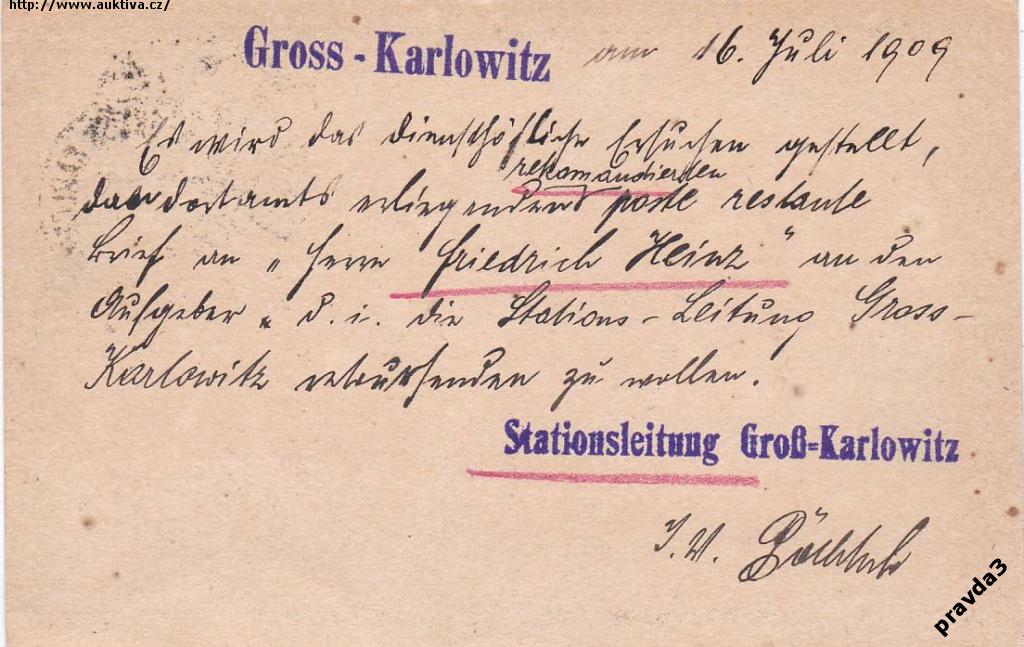 http://www.auktiva.cz/
Gross-Karlowitz am 16. Juli 1909
Es wird das diensthöfliche Ersuchen gestellt,
rekomandierten
den dortamts erliegenden poste restante
Brief an „Herrn Friedrich Heinz" an den
Aufgeber „ d. i. die Stations-Leitung Gross-
Karlowitz retoursenden zu wollen.
Stationsleitung Groß-Karlowitz
I. V.
pravda3